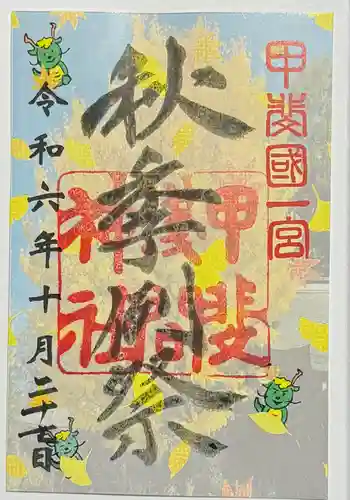 甲斐國一宮
甲斐
神社
秋季例祭
令和六年十月二十日